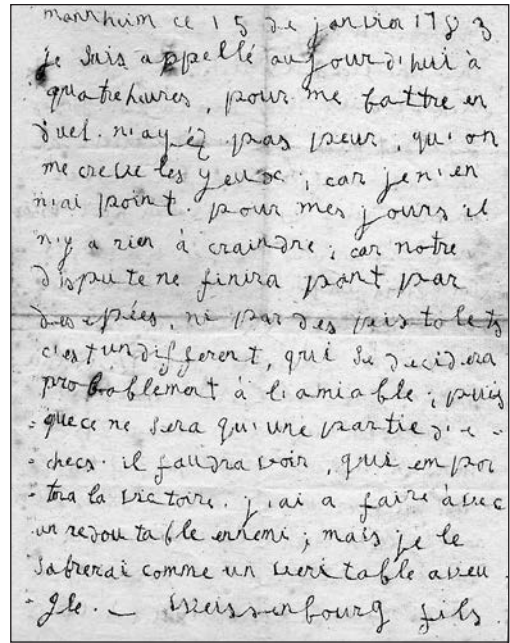 mannheim ce 15 de janvier 1783
je suis appellé aujourd'hui à
quatre heures, pour me battre en
duel. n'ayéz pas peur, qu'on
me creve les yeux; car je n'en
n'ai point. pour mes jours il
n'y a rien à craindre; car notre
dispute ne finira point par
des epées, ni par des pistolets
c'est un different, qui se decidera
probablement à l'amiable; puis
- que ce ne sera qu'une partie d'e -
- checs. il faudra voir, qui empor
- tera la victoire. j'ai a faire avec
un redoutable ennemi; mais je le
sabrerai comme un veritable aveu
gle. — weissenbourg fils